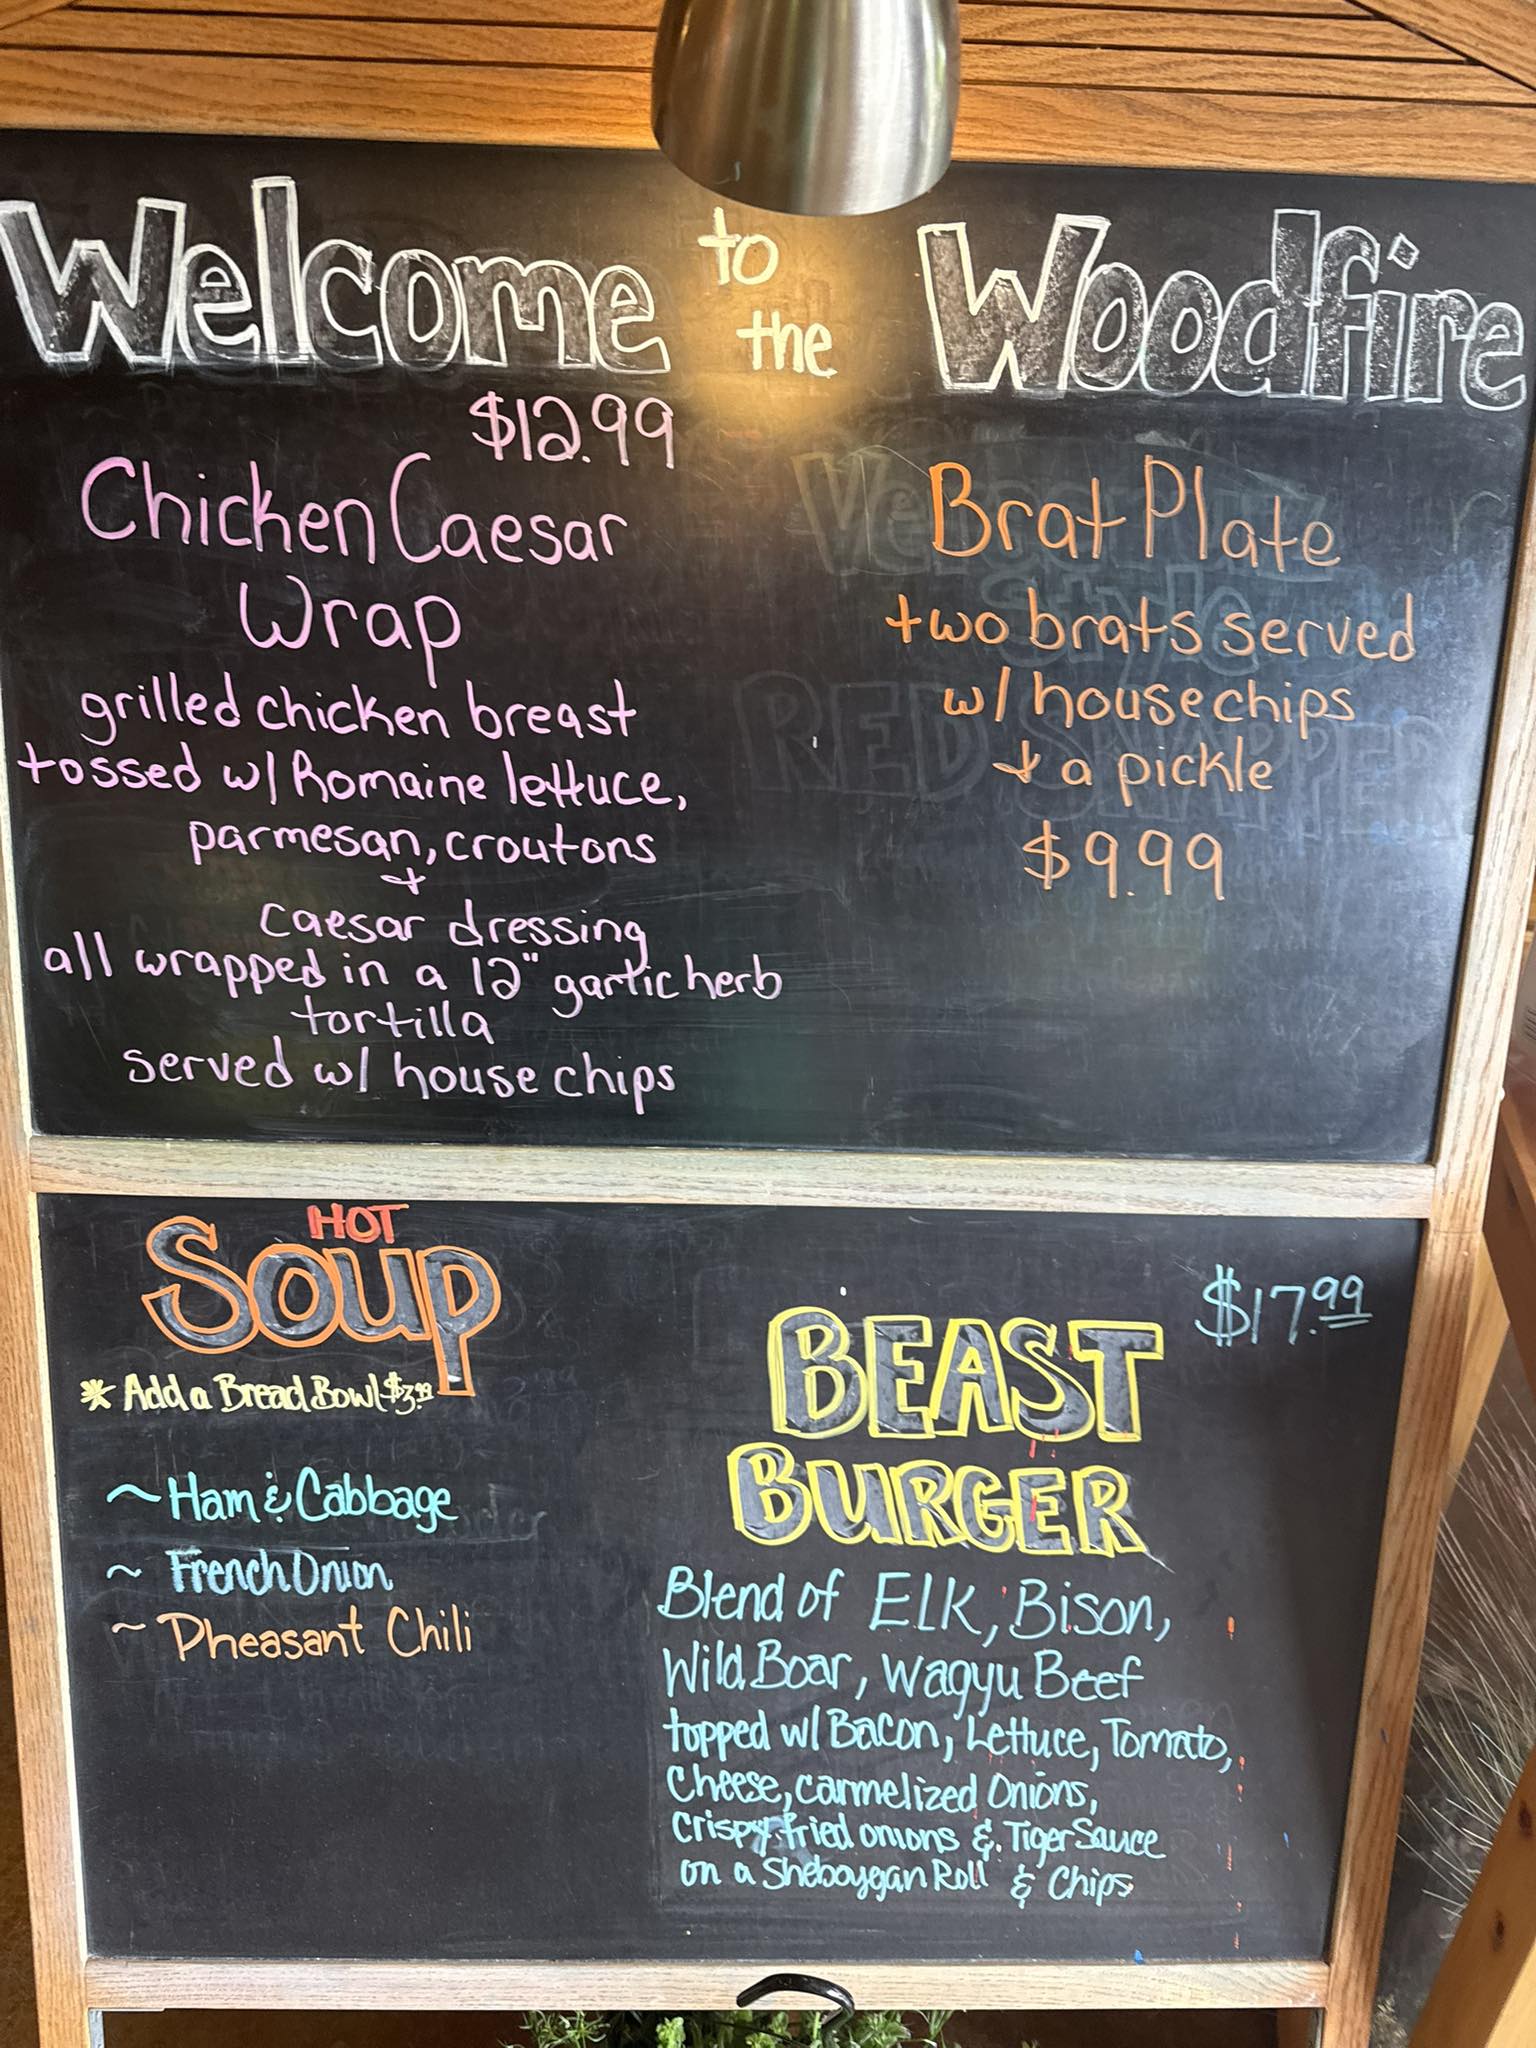 Welcome to the Woodfire
$12.99
Chicken Caesar
Wrap
grilled chicken breast
tossed w/ Romaine lettuce,
parmesan, croutons
+
caesar dressing
all wrapped in a 12" garlic herb
tortilla
served w/ house chips
Brat Plate
two brats served
w/ house chips
+ a pickle
$9.99
HOT
Soup
* Add a Bread Bowl $3.99
~ Ham & Cabbage
~ French Onion
~ Pheasant Chili
$17.99
BEAST
BURGER
Blend of ELK, Bison,
Wild Boar, Wagyu Beef
topped w/ Bacon, Lettuce, Tomato,
Cheese, Carmelized Onions,
Crispy fried onions & Tiger Sauce
on a Sheboygan Roll & Chips